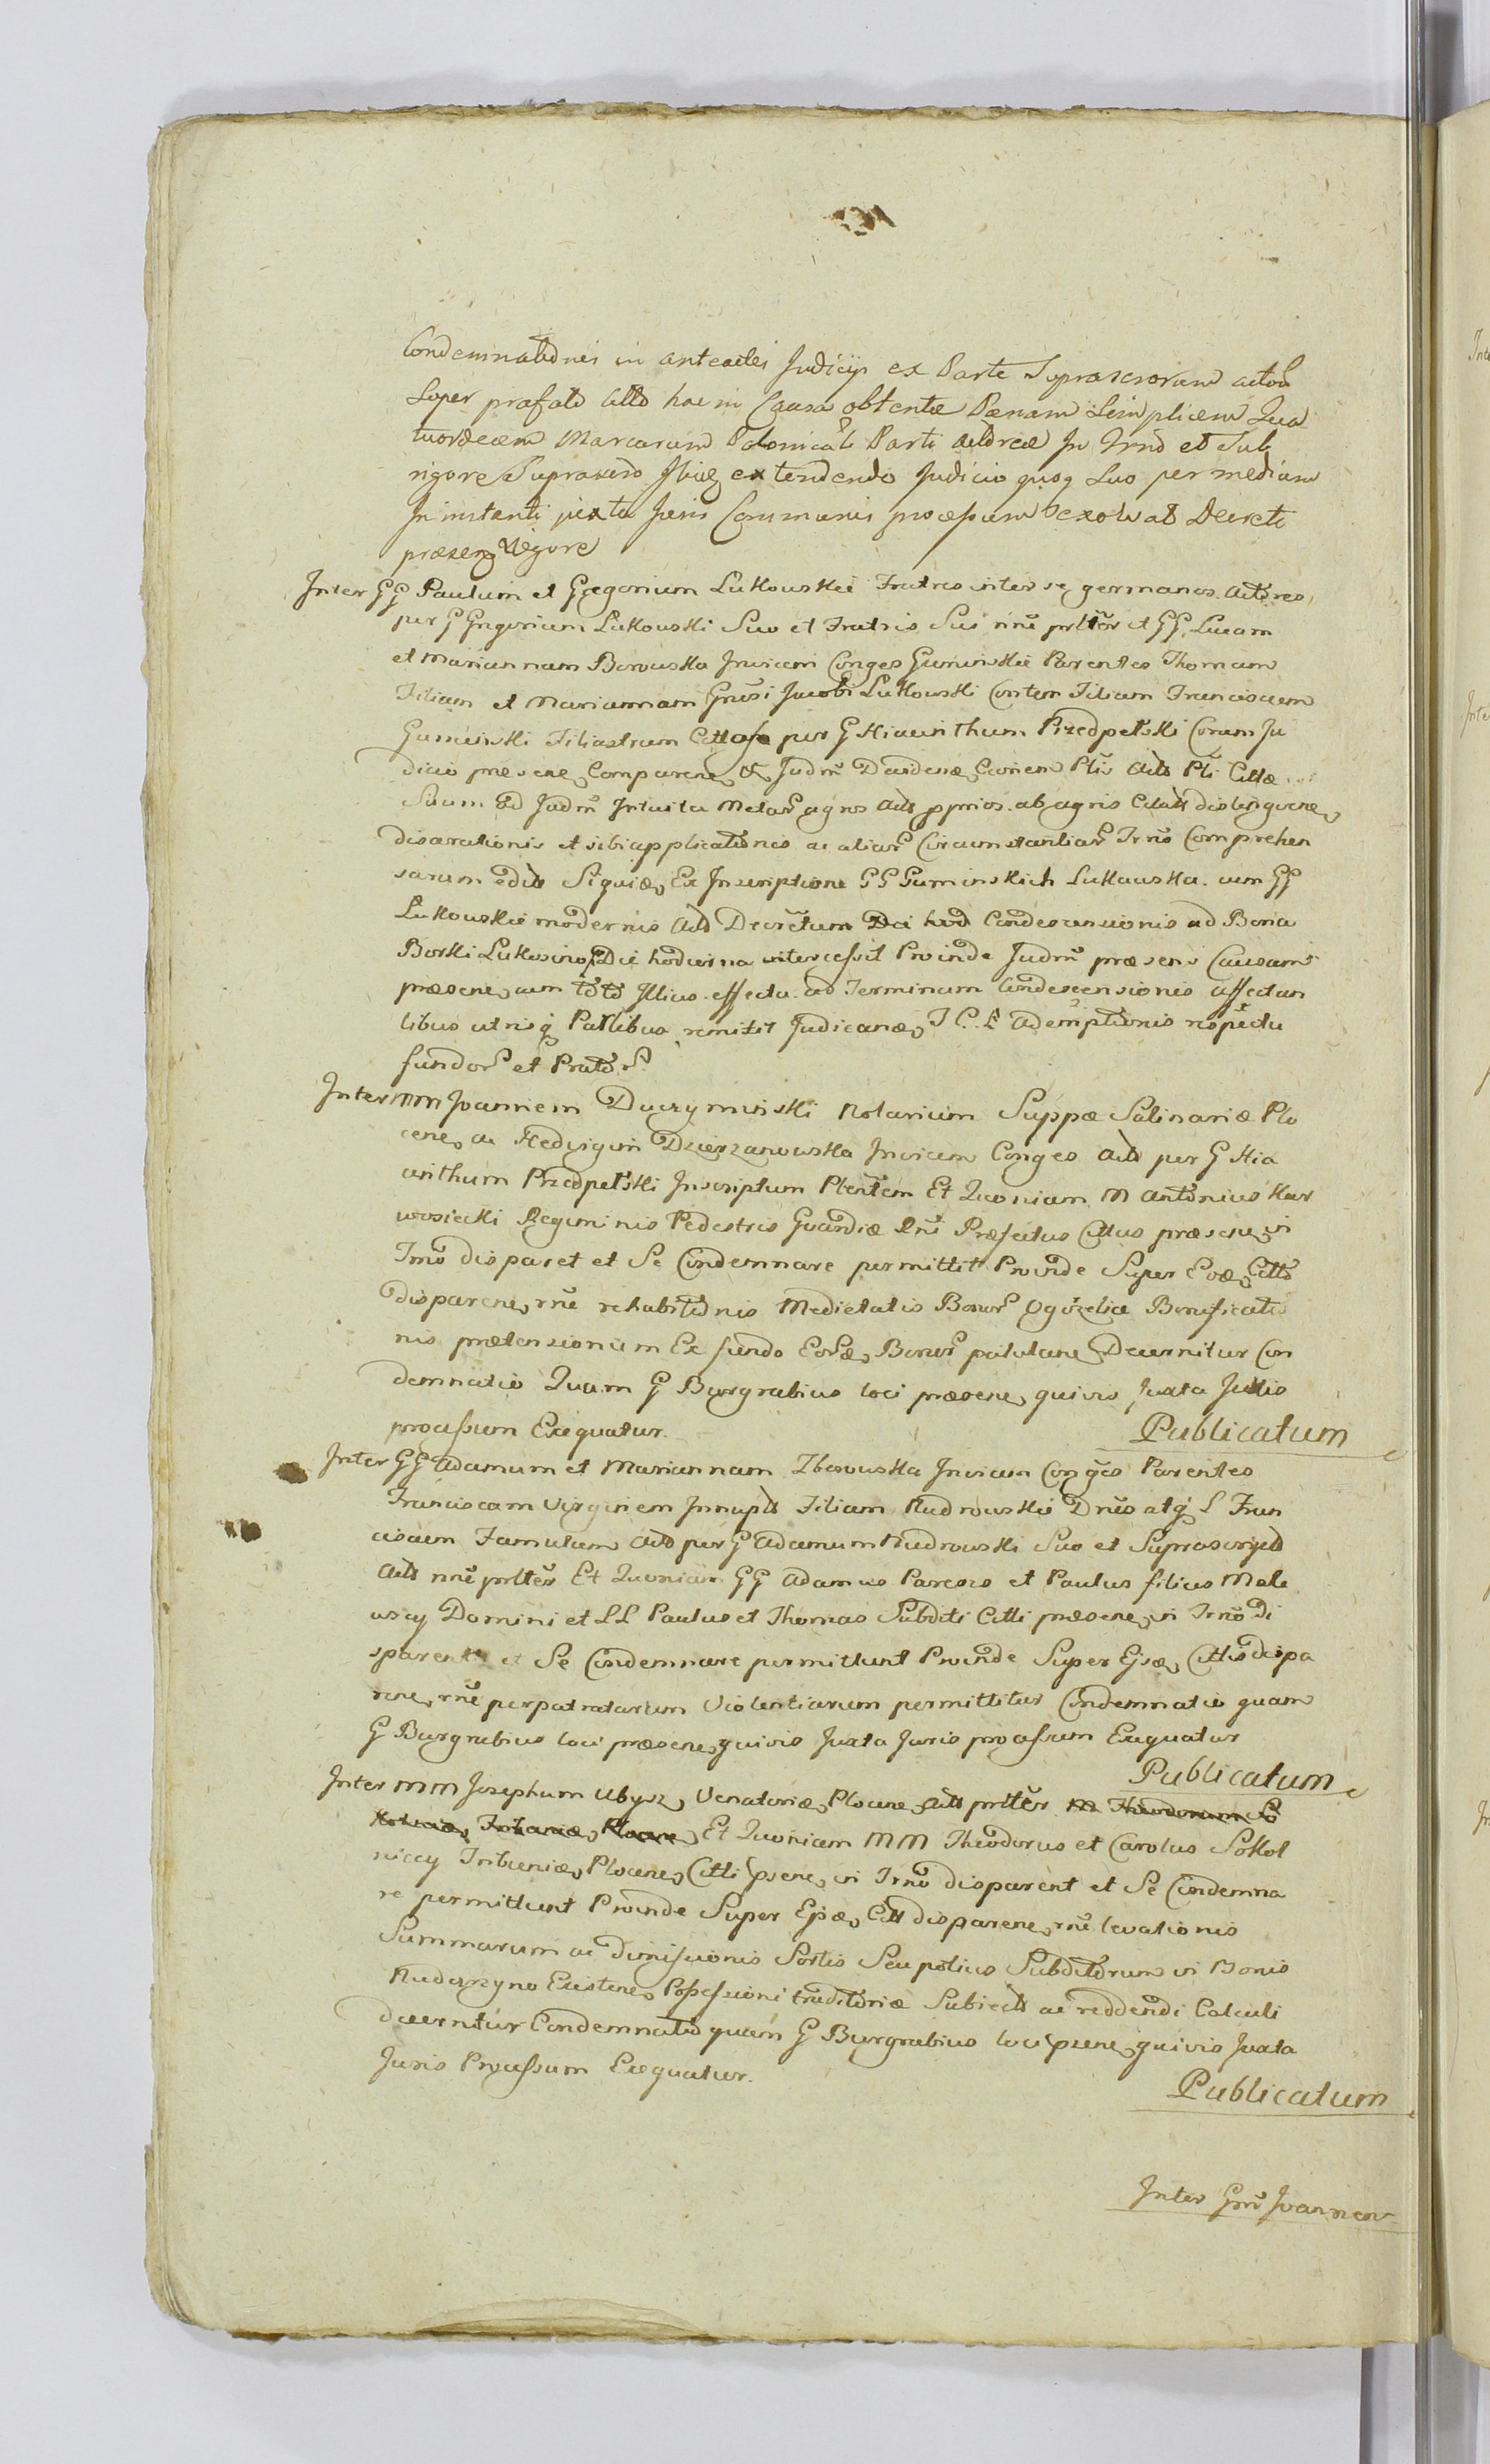 Condemnationis in anteactis Judicijs ex Parte Suprascrorum actorũ
Super præfato Citto hac in Causa obtentæ Pænam Simplicem Qua
tuordecem Marcarum Polonicalĩ Parti actoreæ In Trnô et Sub
rigore Suprascro extendendo Judicio quoq suo per medium
In instanti juxta Juris Communis processum exolvat Decreti
præsen vigore
Inter GG Paulum et Gregorium Lukowskie Fratres inter se germanos Actores
per G Gregorium Lukowski Suo et Fratris Sui nñe prltẽs et GG Lucam
et Mariannam Borowska Invicem Conges Guminskie Parentes Thomam
Filium et Mariannam Gnõsi Jacobi Lukowski Contem Filiam Franciscum
Guminski Filiastrum Cittos per G Hiacinthum Przedpełski Coram Ju
dicio præsene Comparene Judm̃ Decidenæ Partis Acto Pti Cittæ
Suum ad Judm̃ Intuitu Metar agros Act pprios ab agris Citatt distinguene
disarationis et sibi applicationis ac aliar Circumstantiar Trnõ Comprehen
sarum edito Siquiæ Ex Inscriptione GG Guminskich Lukowska cum GG
Lukowskie modernis Act Decretum Condescensionis ad Bona
Borki Lukosino Die hodierna intercessit Proinde Judm̃ præsens Causam
præsene cum toto Illius effectu ad Terminum Condescensionis affectan
tibus utrisq Partibus remisit Judicanæ T C. E ademptionis respectu
fundor et Prator
Inter MM Joannem Duczyminski Notarium Suppæ Salinariæ Plo
cene ac Hedvigim Dzierzanowska Invicem Conges Act per G Hia
cinthum Przedpełski Inscriptum Plentẽm Et Quoniam M Antonius Kar
wosiecki Regiminis Pedestris Guardiæ Rni Præfectus Cittus præsene in
Trnõ disparet et Se Condemnare permittit Proinde Super Eoæ Citto
disparene rnẽ rehabitõnis Medietatis Bonor Ogorzelice Bonificatio
nis prætensionum Ex fundo Eorõæ Bonor patutane Decernitur Con
demnatio Quam G Burgrabius loci præsene quivis Juxta Juris
processum Exequatur.
Publicatum
Inter GG Adamum et Mariannam Zborowska Invicem Conges Parentes
Franciscam Virginem Innuptt Filiam Rudrowskie Dños atq L Fran
ciscum Famulum Act per G Adamum Rudrowski Suo et Suprascriptt
Act nñe prltẽs Et Quoniam GG Adamus Parens et Paulus filius Male
wscy Domini et LL Paulus et Thomas Subditi Citti præsene in Trnõ di
sparent et Se Condemnare permittunt Proinde Super Ejsæ Cittis dispa
rene rnẽ perpatratarum Violentiarum permittitur Condemnatio quam
G Burgrabius loci præsene quivis Juxta Juris processum Exequatur
Publicatum
Inter MM Josephum Ubysz Venatoriæ Plocene Act prltẽs M Theodorum So
Tribuniæ Plocene Et Quoniam MM Theodorus et Carolus Sokol
niccy Tribuniæ Plocene Citti psene in Trnõ disparent et Se Condemna
re permittunt Proinde Super Ejsæ Citt disparene rnẽ levationis
Summarum ac dimissionis Sortis Seu potius Subditorum in Bonis
Existene Possessioni traditoriæ Subiectt ac reddendi Calculi
decernitur Condemnatio quam G Burgrabius loci psene quivis Juxta
Juris Processum Exequatur.
Publicatum
Inter Gnũ Joannem